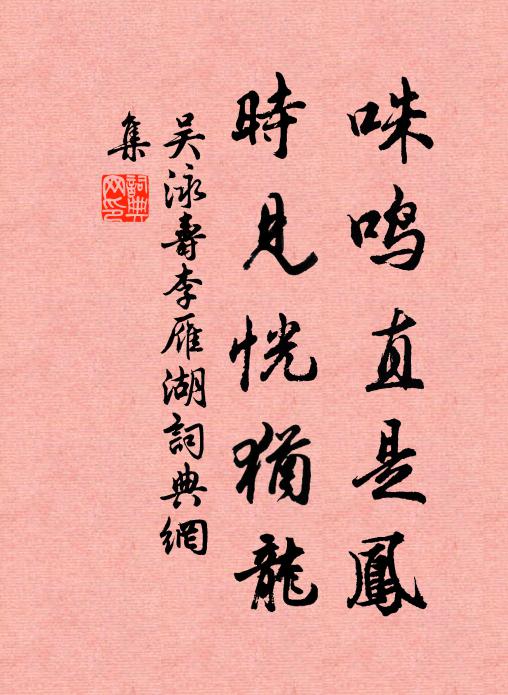 咮鸣直是鳳
時見恍猶龍
吴泳壽李雁湖詞典網
集
詞典网印